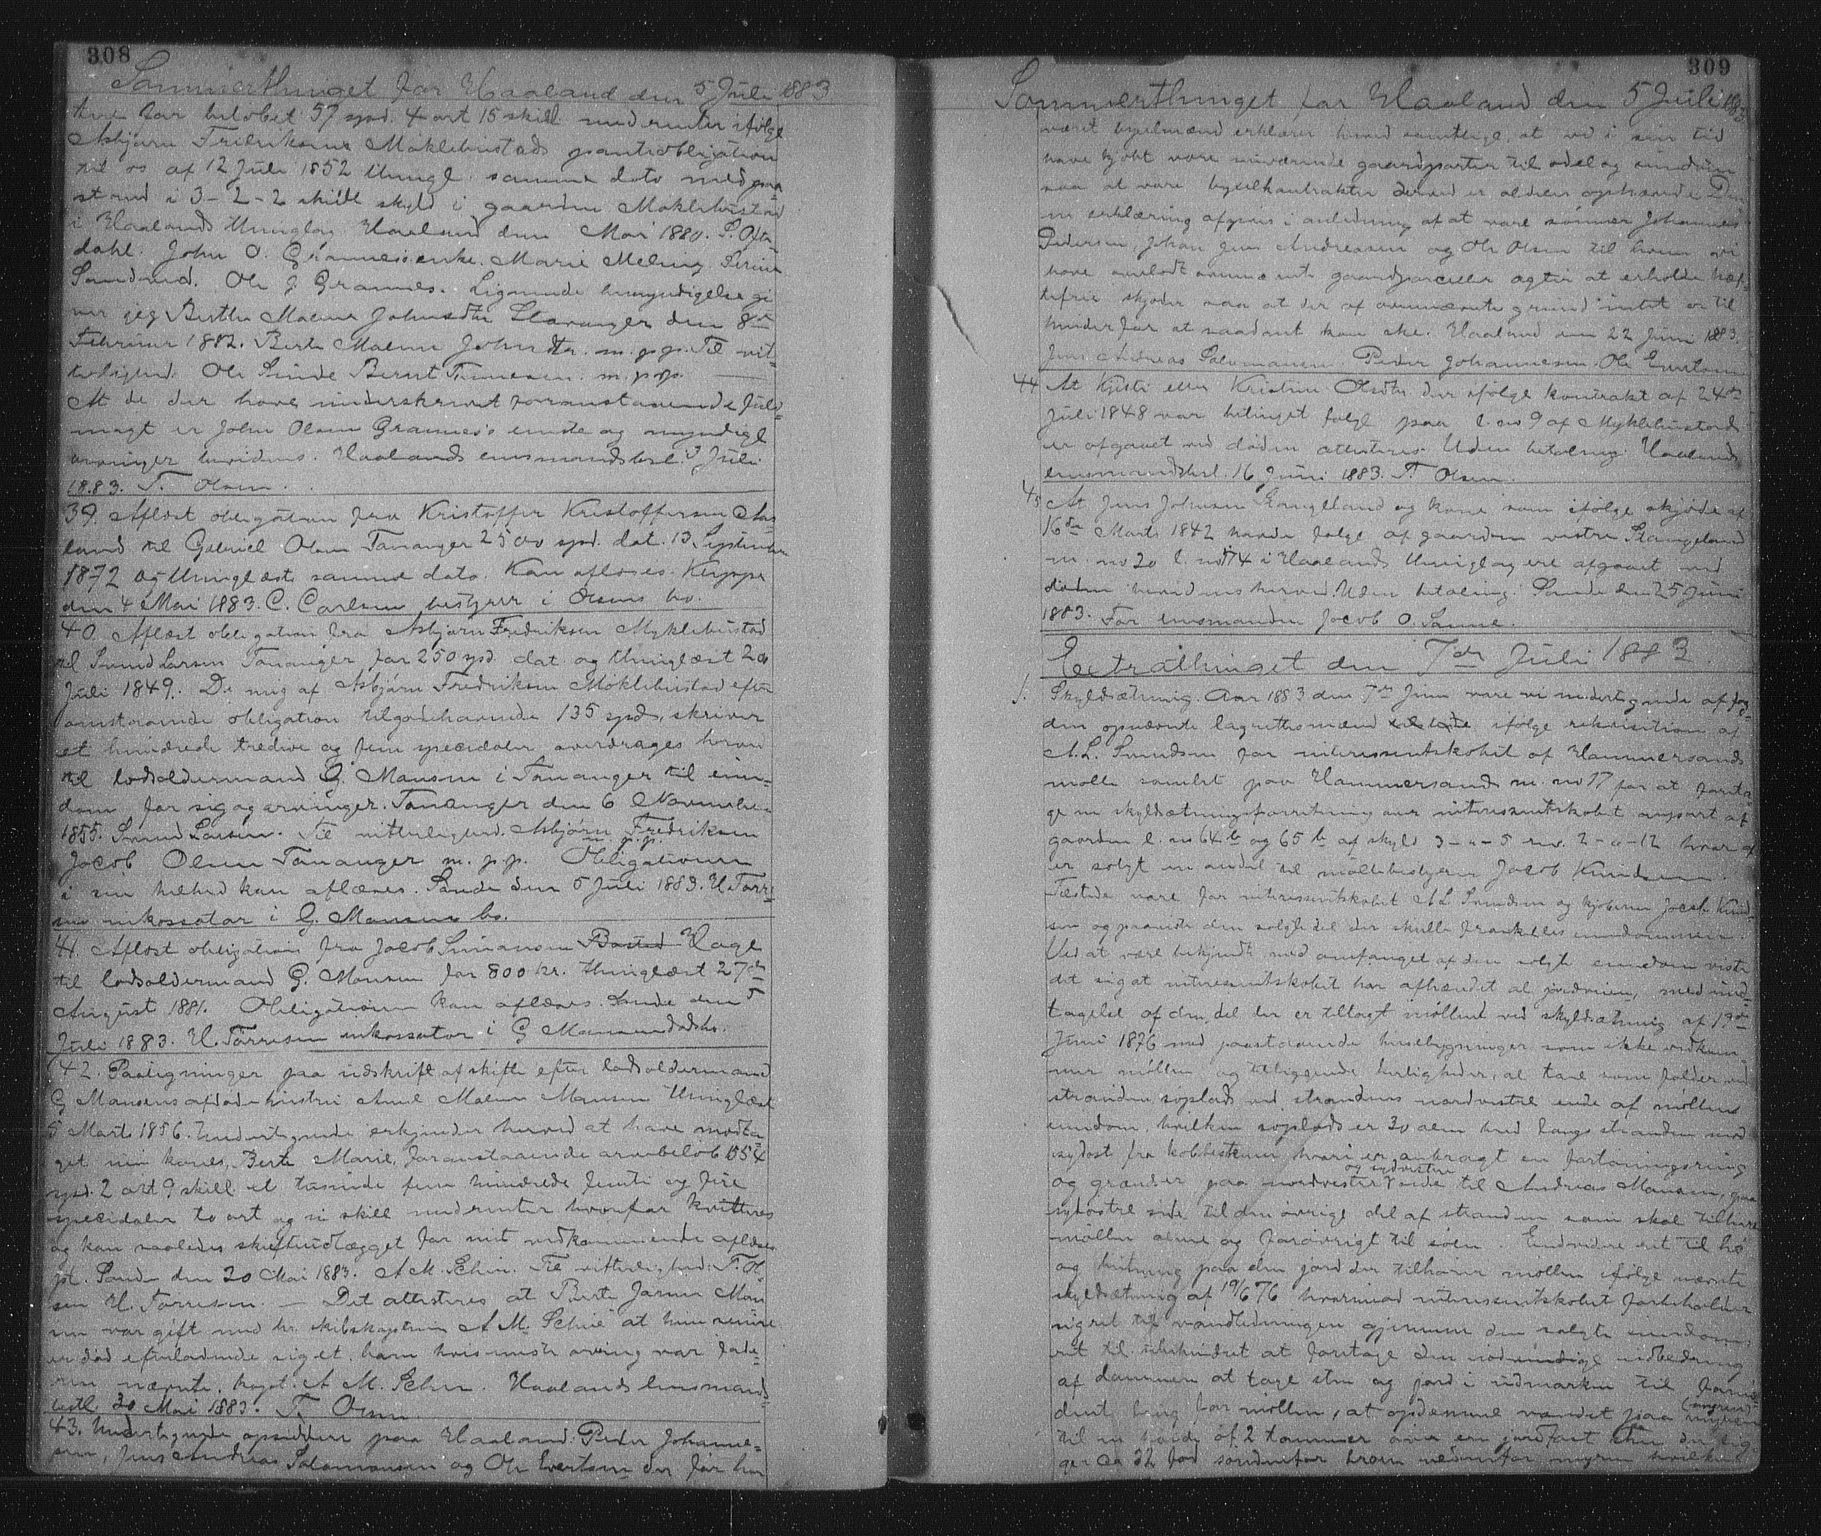 308
Sommerthinget for Haaland den 5 Juli 1883
tere for beløbet 57 spd. 4 ort 15 skill med renter ifølge
Asbjørn Fredriksens Møklebustads pantobligation
til os af 12 Juli 1852 thingl. samme dato med paa
stand i 3-2-2 skills skyld i gaarden Møklebustad
i Haalands thinglag. Haaland den Mai 1880. P. Ofte-
dahl. John O. Grannes's enke. Marie Meling. Serine
Sandvad. Ole J Grannes. Lignende bemyndigelse gi
ver jeg Berthe Malene Johnsdtr Stavanger den 8de
Februar 1882. Berte Malene Johnsdtr. m. p. p. Til vit
terlighed. Ole Sunde Bernt Tønnesen. m. p. p.
At de der have underskrevet foranstaaende fuld-
magt er John Olsen Grannes's enke og myndige
arvinger bevidnes. Haalands lensmandsbest. 3 Juli
1883. T. Olsen.
39. Aflæst obligation fra Kristoffer Kristoffersen Aas-
land til Gabriel Olsen Tananger 2500 spd. dat. 13 September
1872 og thinglæst samme dato. Kan aflæses. Kleppe
den 4 Mai 1883. C. Carlsen bestyrer i Olsens bo.
40. Aflæst obligation fra Asbjørn Fredriksen Myklebustad
til Svend Larsen Tananger for 250 spd. dat og thinglæst 20
Juli 1849. De mig af Asbjørn Fredriksen Møklebustad efter
omstaaende obligation tilgodehavende 135 spd, skriver
et hundrede tredive og fem speciedaler overdrages herved
til lodsoldermand G. Monsen i Tananger til eien-
dom for sig og arvinger. Tananger den 6 November
1855. Svend Larsen. Til vitterlighed. Asbjørn Fredriksen
m. p. p.
Jacob Olsen Tananger m. p. p. Obligationen
i sin helhed kan aflæses. Sande den 5 Juli 1883. H. Torre
sen inkassator i G. Monsens bo.
41. Aflæst obligation fra Jacob Simonsen Hage
til lodsoldermand G. Monsen for 800 kr. thinglæst 27de
August 1881. Obligationen kan aflæses. Sande den 5
Juli 1883. H. Torresen inkassator i G Monsens dødsbo.
42. Paategninger paa udskrift af skifte efter lodsoldermand
G Monsens afdøde hustru Anne Malene Monsen thinglæst
5 Marts 1856. Undertegnede erkjender herved at have modta-
get min kones, Berte Marie, foranstaaende arvebeløb 1554
spd. 2 ort 9 skill et tusinde fem hundrede femti og fire
speciedaler to ort og ni skill med renter hvorfor kvitteres
og kan saaledes skifteudlægget for mit vedkommende aflæses
pt. Sande den 20 Mai 1883. A M. Schie. Til vitterlighed: T. Ol-
sen H. Torresen. – Det attesteres at Berte Marie Mon
sen var gift med hr. skibskaptein A M. Schie at hun senere
er død efterladende sig et barn hvis eneste arving var fade-
ren nævnte kapt. A M. Schie. Haalands lensmands
bestl 30 Mai 1883. T. Olsen
43. Undertegnede opsiddere paa Haaland: Peder Johanne-
sen, Jens Andreas Salomonsen og Ole Evertsen der før har
309
Sommerthinget for Haaland den 5 Juli 1883
været bygselmænd erklærer herved samtlige, at vi i sin tid
have kjøbt vore nuværende gaardparter til odel og eiendom
saa at vore bygselkontrakter derved er aldeles ophævede. Den
ne erklæring afgives i anledning af at vore sønner Johannes
Pedersen, Johan Jens Andreassen og Ole Olsen til hvem vi
have overladt ovennævnte gaardparceller agter at erholde hæf-
telsefrie skjøder saa at der af ovennævnte grund intet er til
hinder for at saadant kan ske. Haaland den 22 Juni 1883.
Jens Andreas Salomonsen Peder Johannesen. Ole Evertsen
44 At Kjisti eller Kristine Olsdtr der ifølge kontrakt af 24de
Juli 1848 var betinget følge paa l. no 9 af Myklebustad
er afgaaet ved døden attesteres. Uden betaling. Haalands
lensmandsbestl. 16 Juni 1883. T. Olsen.
45 At Jens Johnsen Stangeland og kone som ifølge skjøde af
16de Marts 1842 havde følge af gaarden vestre Stangeland
m. no 20 l. no 74 i Haalands thinglag ere afgaaet ved
døden bevidnes herved. Uden betaling. Sande den 25 Juni
1883. For lensmanden Jacob O. Sømme.
Extrathinget den 7de Juli 1883
1. Skyldsætning. Aar 1883 den 7de Juni vare vi undertegnede af fog
den opnævnte lagrettesmænd ifølge rekvisition af
A. L. Svendsen for interessentskabet af Hammersands
mølle samlet paa Hammersand m. no 17 for at foreta-
ge en skyldsætningsforretning over interessentskabets anpart af
gaarden l. no 64b og 65b af skyld 3-"-5 rev. 2-"-12 hvoraf
er solgt en andel til møllebestyrer Jacob Knudsen.
Tilstede vare for interessentskabet A L Svendsen og kjøberen Jacob Knud-
sen og paaviste den solgte del der skulle fraskilles eiendommen.
Ved at være bekjendt med omfanget af den solgte eiendom viste
det sig at interessentskabet har afhændet al jordveien, med und-
tagelse af den del der er tillagt møllen ved skyldsætning af 19de
Juni 1876 med paastaaende husebygninger som ikke vedkom-
mer møllen, og tilliggende herligheder, al tare som falder ved
stranden, søplads ved strandens nordvestre ende af møllens
eiendom, hvilken søplads er 30 alen bred langs stranden mod
sydost fra kobbesteinen hvori er anbragt en fortøiningsring
og grændser paa nordvestre og sydvestre side til Andreas Monsen, paa
sydøstre side til den øvrige del af stranden som skal tilhøre
møllen alene og forøvrigt til søen. Endvidere ret til hø
og beitning paa den jord der tilhører møllen ifølge nævnte
skyldsætning af 19/6 76 hvorimod interessentskabet forbeholder
sig ret til vandledningen gjennem den solgte eiendom
ret til uhindret at foretage den nødvendige udbedring
af dammen at tage sten og jord i udmarken til forne-
dent brug for møllen, at opdæmme vandet paa myren
til en høide af 2 tommer over en jordfast sten der lig-
ger ca 32 fod søndenfor broen nedenfor myren hvilke